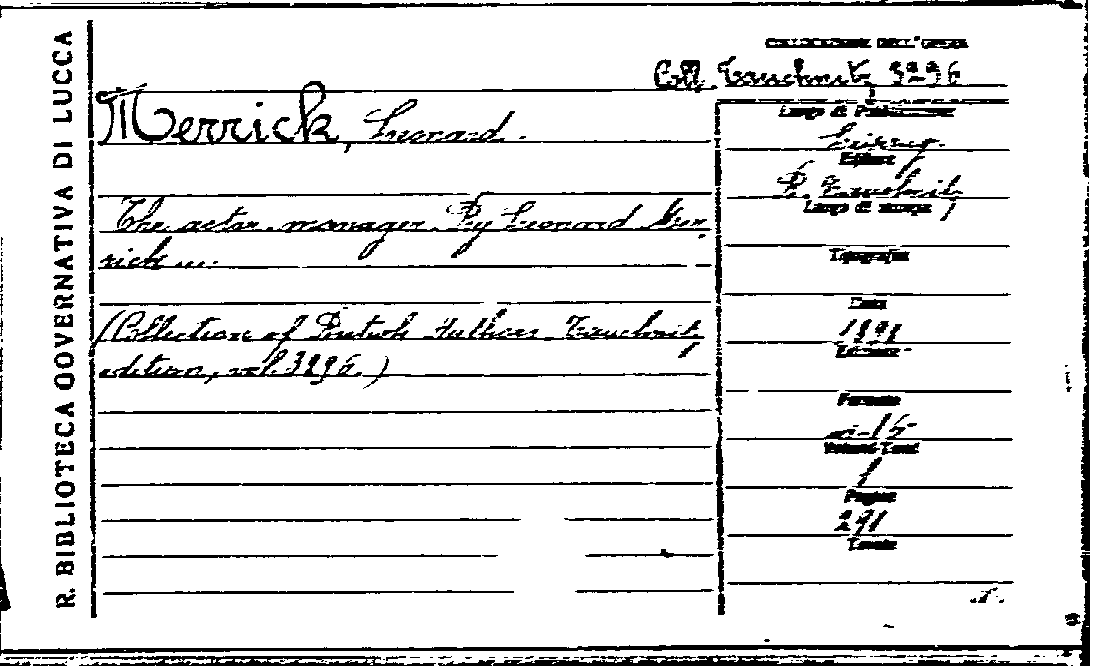 R. BIBLIOTECA GOVERNATIVA DI LUCCA
COLLOCAZIONE DELL'OPERA
Coll. Tauchnitz 3296
Merrick, Leonard.
The actor-manager. By Leonard Mer-
rick ...
(Collection of British Authors. Tauchnitz
edition, vol. 3296.)
Luogo di Pubblicazione
Leipzig.
Editore
B. Tauchnitz
Luogo di stampa
Tipografia
Data
1898
Edizione
Formato
in-16
Volumi-Tomi
1
Pagine
291
Tavole